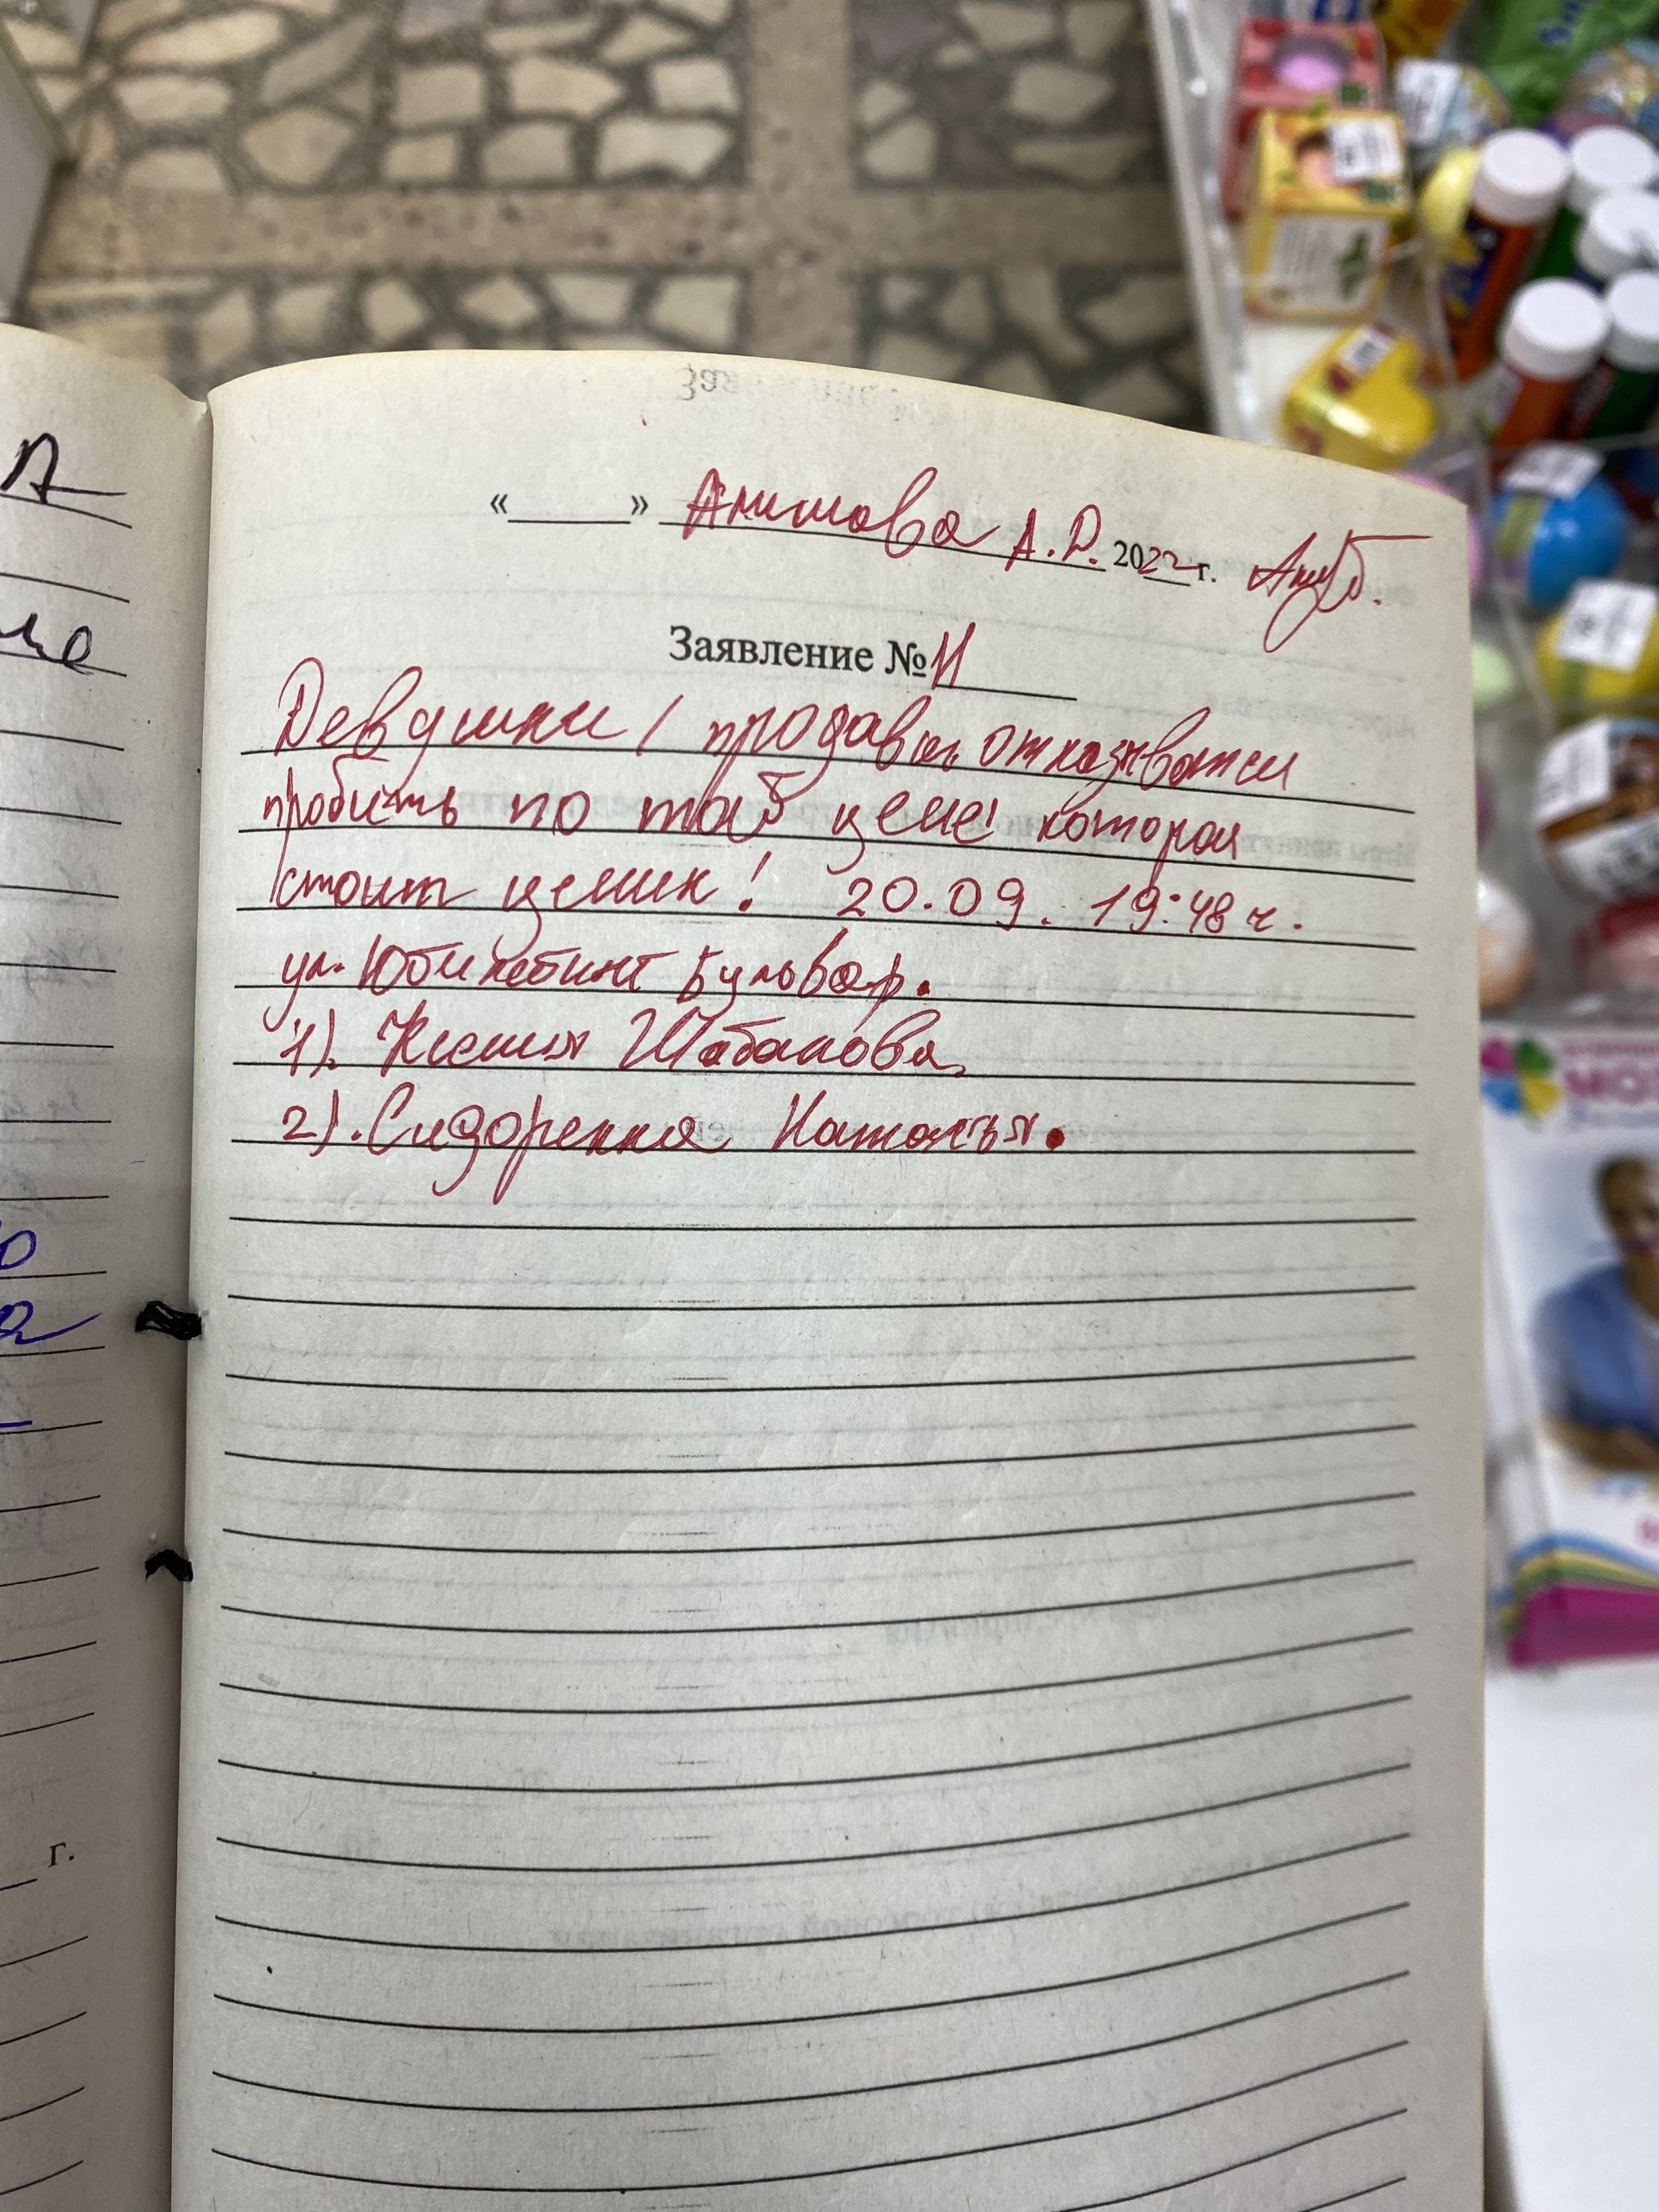 « » Анишова А.Д. 2022 г.
Заявление № 11
Девушки / продавцы отказываются
пробить по той цене которой
стоит ценик! 20.09. 19:48 ч.
ул. Юбилейный Бульвар.
1). Ксения Шабанова.
2). Сидоренко Наталья.
г.